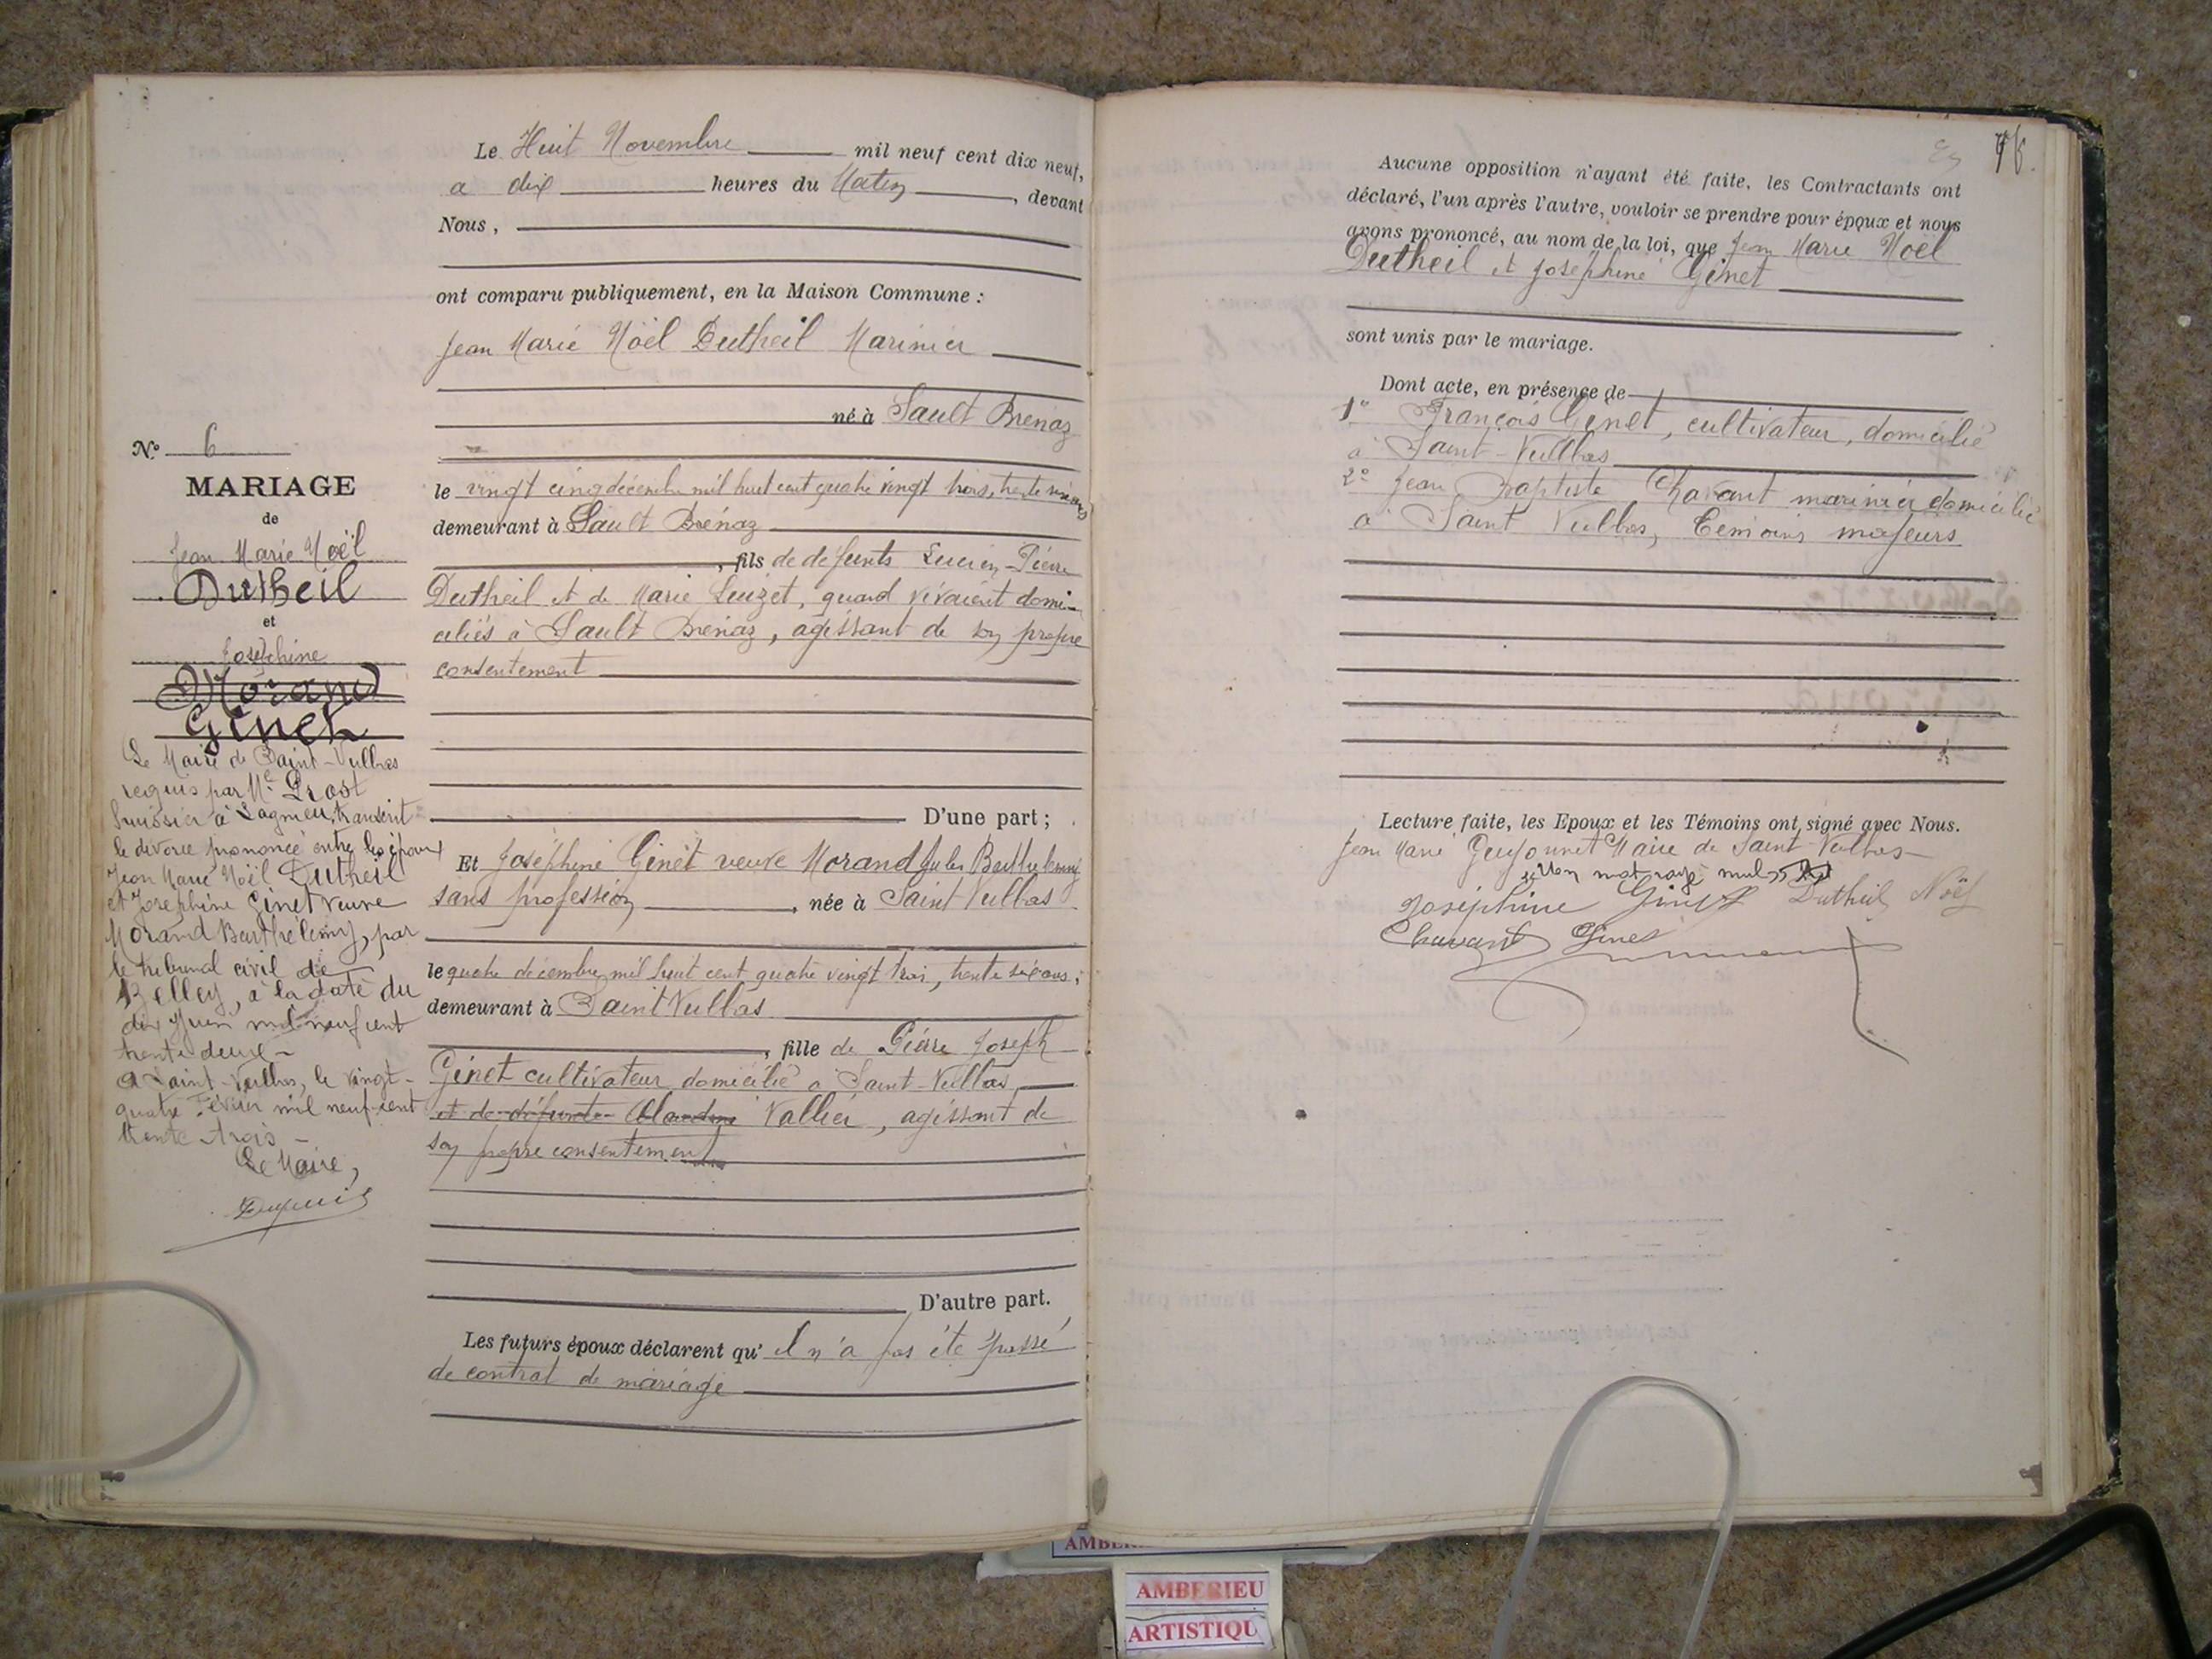 Le Huit Novembre mil neuf cent dix neuf,
a dix heures du Matin, devant
Nous,
ont comparu publiquement, en la Maison Commune :
Jean Marie Noël Dutheil Marinier
né à Sault Brénaz
le vingt cinq décembre mil huit cent quatre vingt trois, trente six ans
demeurant à Sault Brénaz
, fils de defunts Lucien-Pierre
Dutheil et de Marie Luizet, quand vivaient domi-
ciliés à Sault Brénaz, agissant de son propre
consentement
D'une part ;
Et Joséphine Ginet veuve Morand Jules Barthelemy
sans profession, née à Saint Vulbas
le quatre décembre mil huit cent quatre vingt trois, trente six ans,
demeurant à Saint Vulbas
, fille de Pierre Joseph
Ginet cultivateur domicilié à Saint-Vulbas
et de défunte Claudine Vallier, agissant de
son propre consentement
D'autre part.
Les futurs époux déclarent qu' il n'a pas été passé
de contrat de mariage
N° 6
MARIAGE
de
Jean Marie Noël
Dutheil
et
Joséphine
Morand
Ginet
Le Maire de Saint-Vulbas
requis par Me Prost
huissier à Lagnieu, transcrit
le divorce prononcé entre les époux
Jean Marie Noël Dutheil
et Joséphine Ginet veuve
Morand Barthélémy, par
le tribunal civil de
Belley, à la date du
dix Juin mil neuf cent
trente deux -
A Saint-Vulbas, le vingt-
quatre Février mil neuf cent
trente trois -
Le Maire,
Dupuis
76.
Aucune opposition n'ayant été faite, les Contractants ont
déclaré, l'un après l'autre, vouloir se prendre pour époux et nous
avons prononcé, au nom de la loi, que Jean Marie Noël
Dutheil et Joséphine Ginet
sont unis par le mariage.
Dont acte, en présence de
1° François Ginet, cultivateur, domicilié
à Saint-Vulbas
2° Jean Baptiste Chavant marinier domicilié
à Saint Vulbas, témoins majeurs
Lecture faite, les Epoux et les Témoins ont signé avec Nous.
Jean Marie Guyonnet Maire de Saint-Vulbas
Un mot rayé nul
Joséphine Ginet Dutheil Noël
Chavant Ginet
AMBERIEU
ARTISTIQU